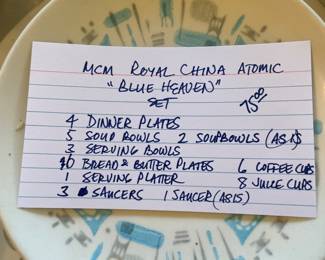 MCM ROYAL CHINA ATOMIC
"BLUE HEAVEN"
SET
75.00
4 DINNER PLATES
5 SOUP BOWLS 2 SOUPBOWLS (AS IS)
3 SERVING BOWLS
10 BREAD & BUTTER PLATES 6 COFFEE CUPS
1 SERVING PLATTER 8 JUICE CUPS
3 SAUCERS 1 SAUCER (AS IS)